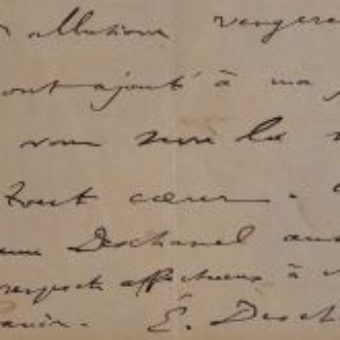 allusions vengere
ont ajouté à ma
vous serre les
tout cœur.
Deschanel
respects affectueux à
É. Desch